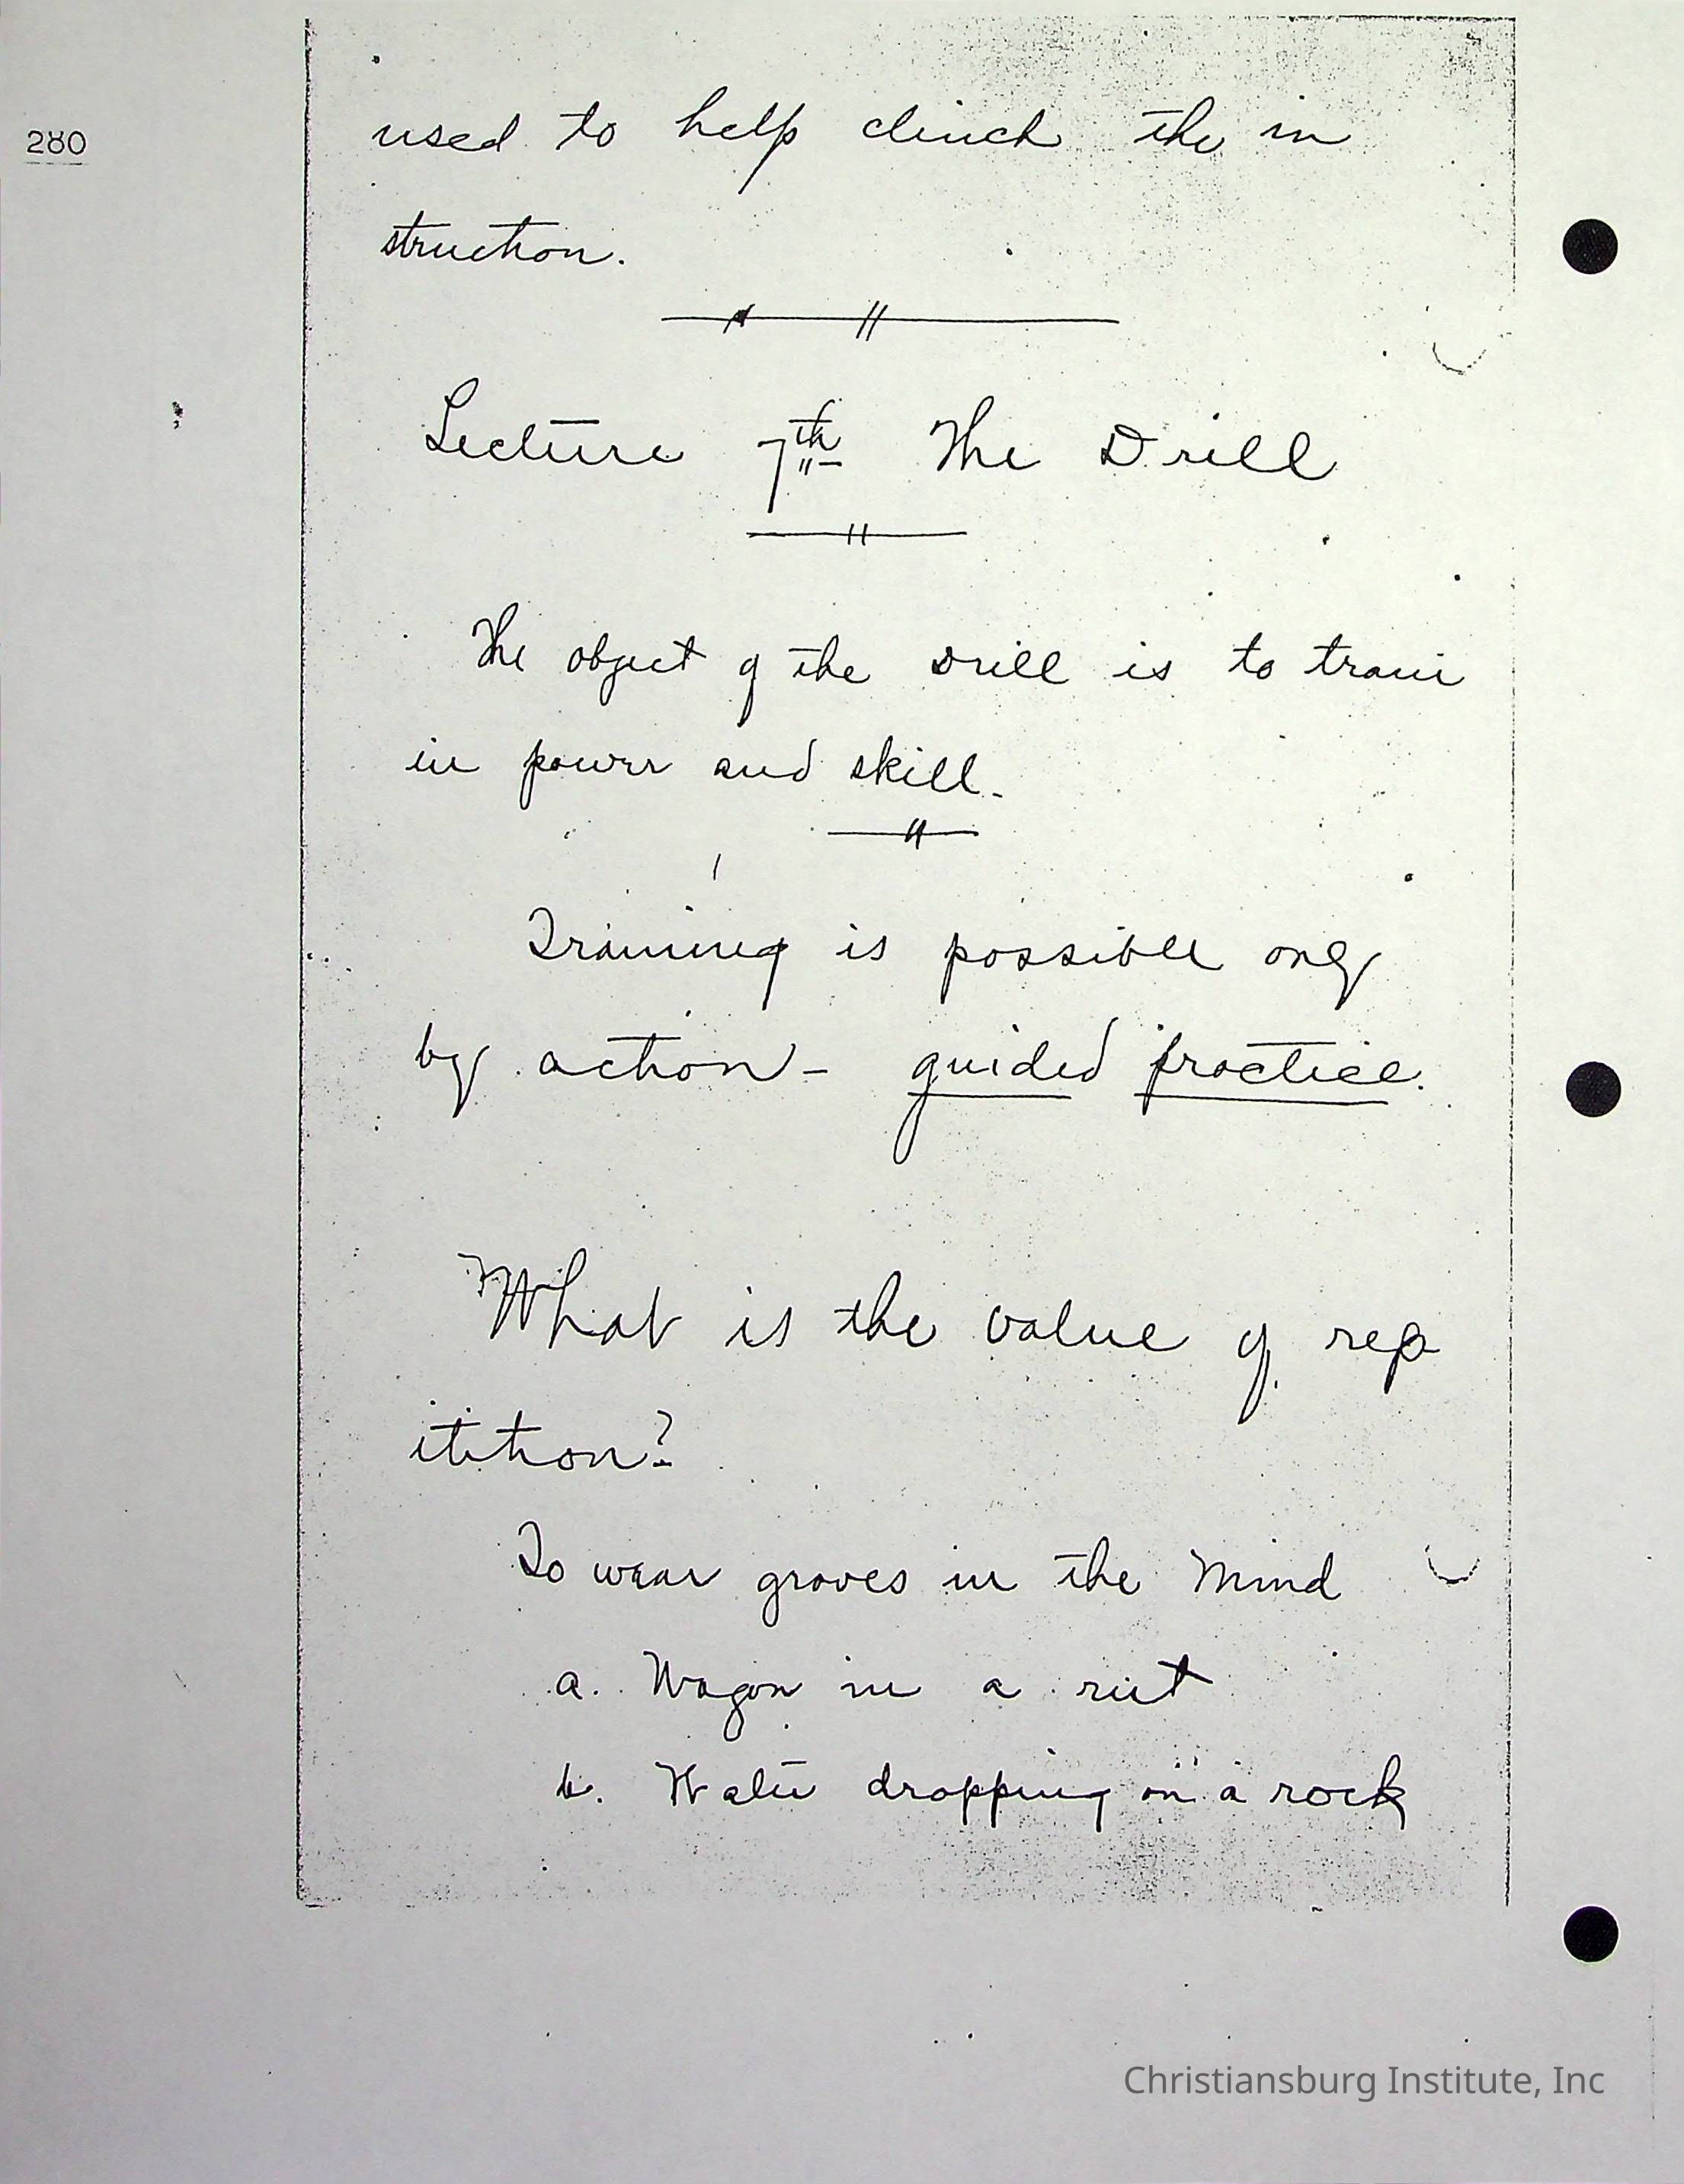 280
used to help clinch the in
struction.
Lecture 7th The Drill
The object of the Drill is to train
in power and skill.
Training is possible only
by action - guided practice.
What is the value of rep
itition?
To wear groves in the Mind
a. Wagon in a rut
b. Water dropping on a rock
Christiansburg Institute, Inc